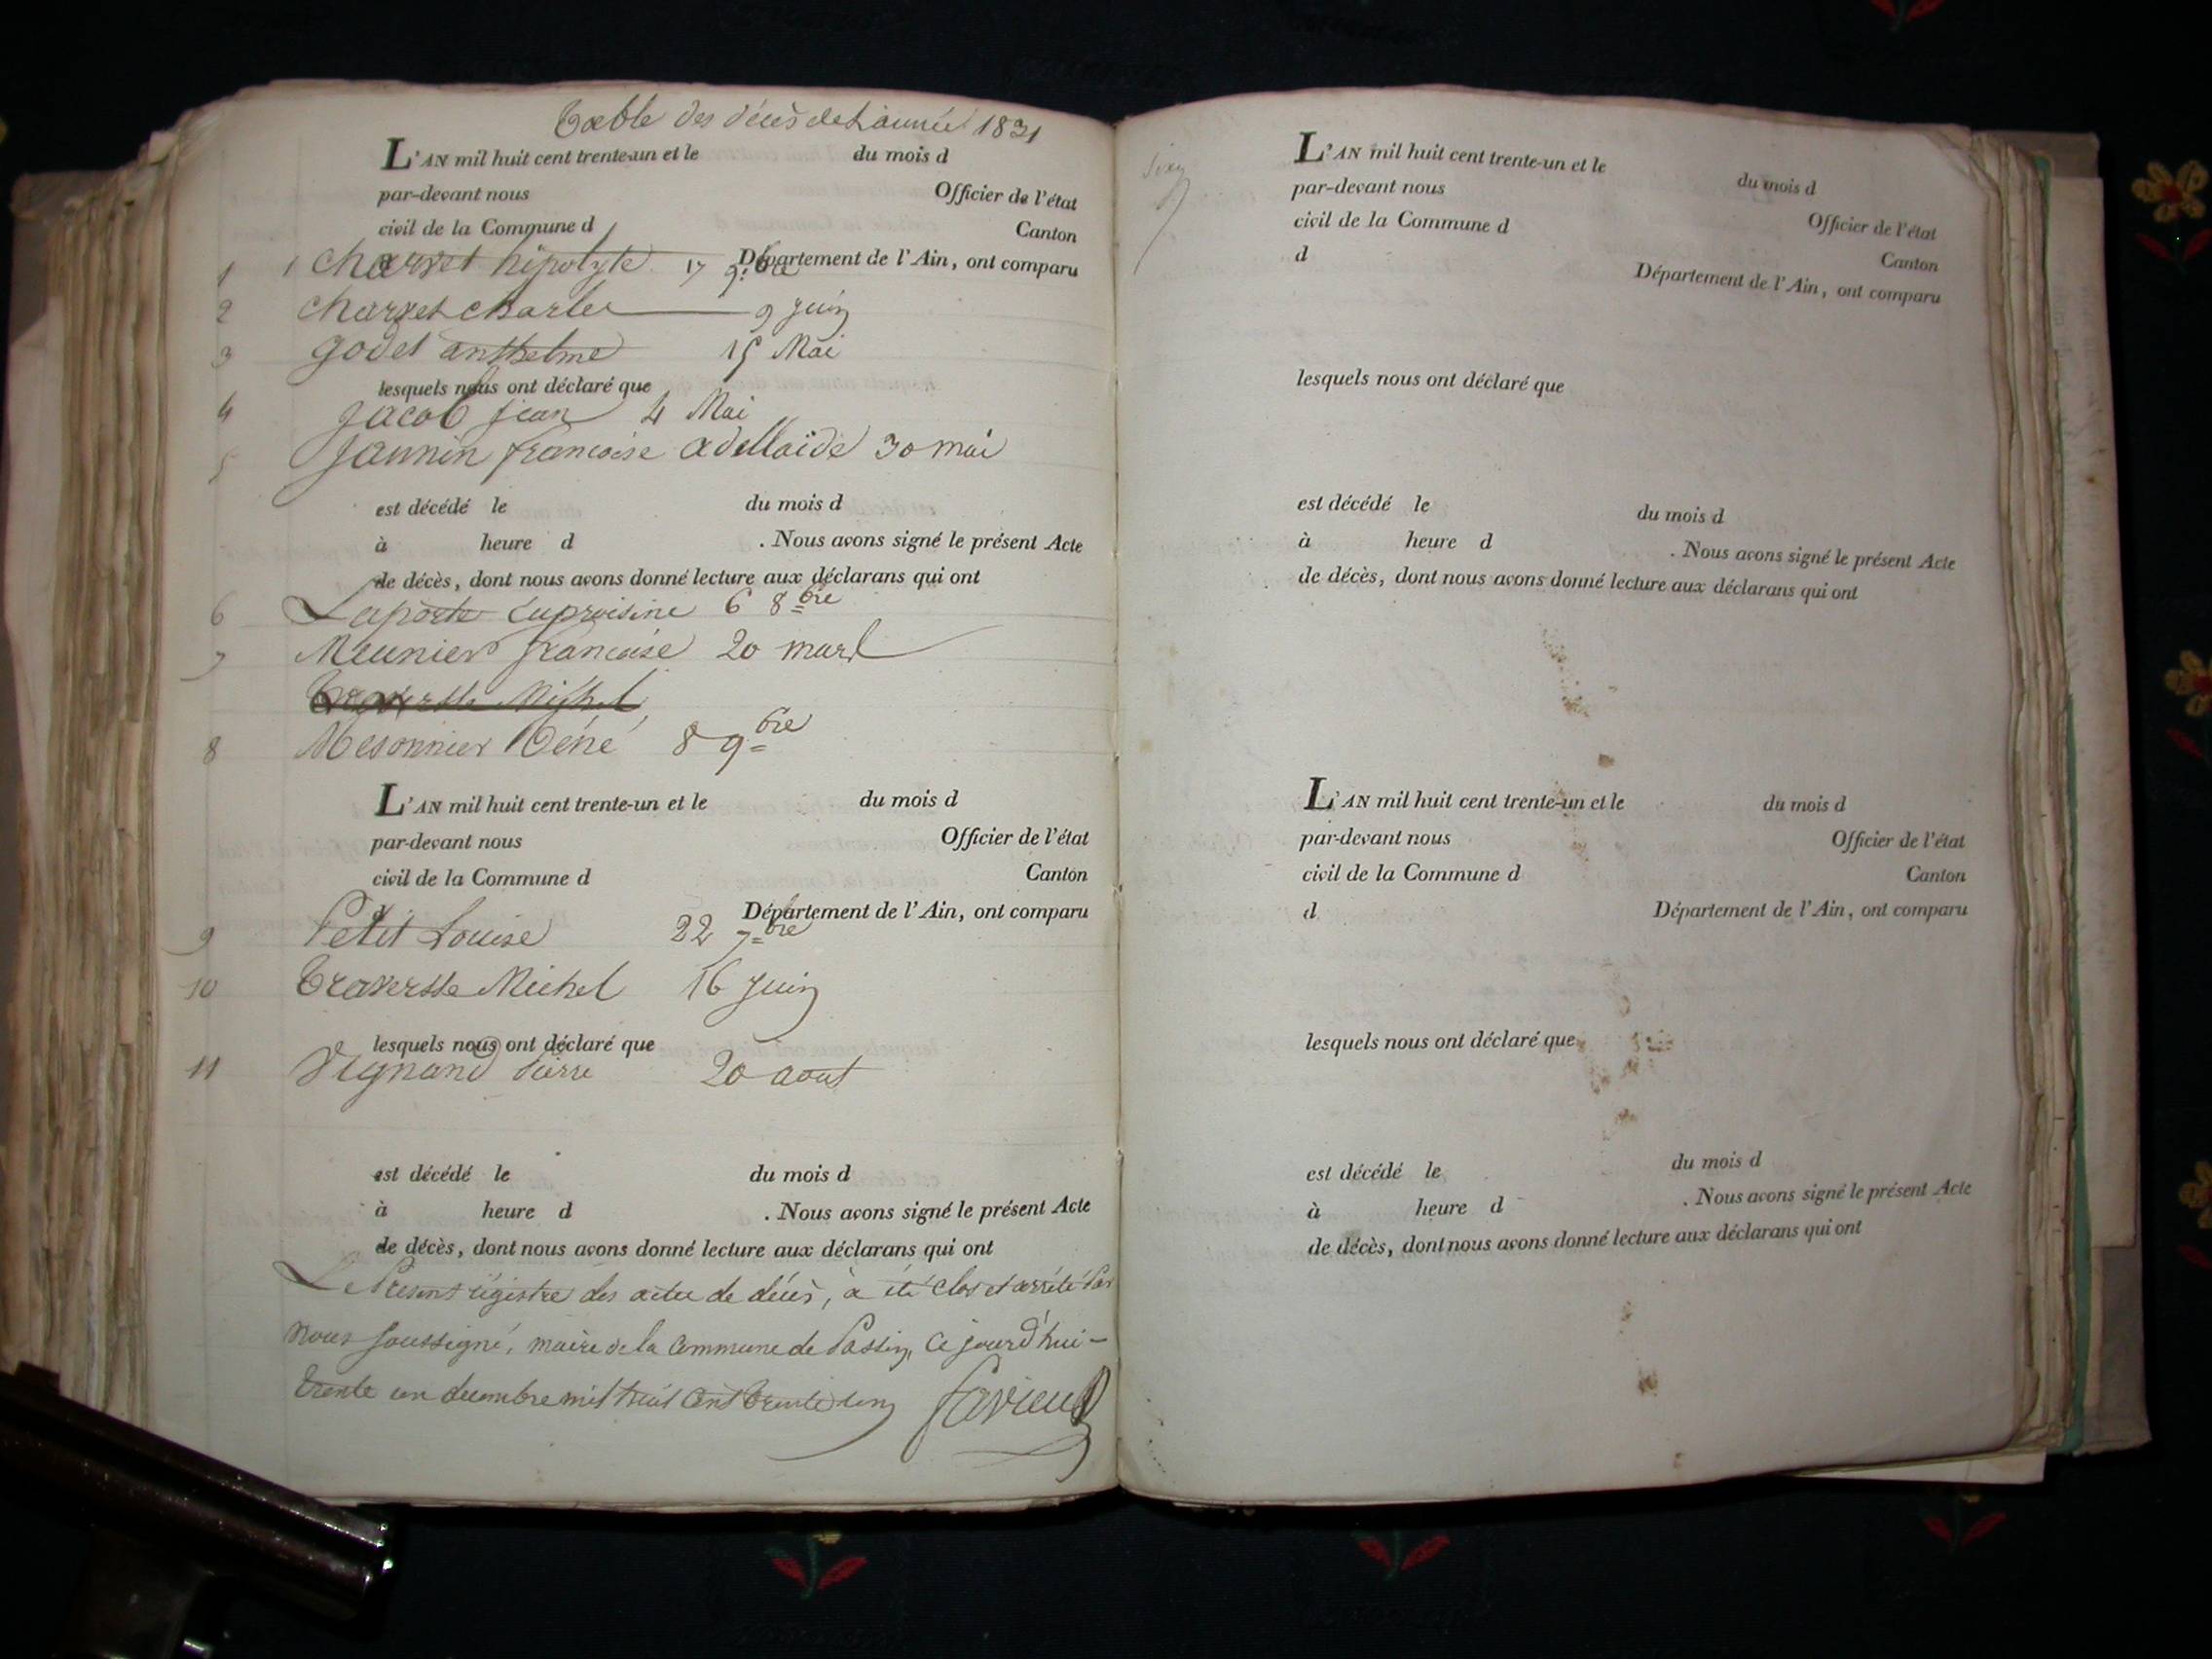 Table des décès de l'année 1831
L'AN mil huit cent trente-un et le du mois d
par-devant nous Officier de l'état
civil de la Commune d Canton
Département de l'Ain, ont comparu
1 1 Charvet hipolyte 17 9.bre
2 Charvet Charles 9 juin
3 godet anthelme 15 Mai
lesquels nous ont déclaré que
4 Jacob jean 4 Mai
5 Jannin francoise adellaïde 30 mai
est décédé le du mois d
à heure d . Nous avons signé le présent Acte
de décès, dont nous avons donné lecture aux déclarans qui ont
6 Laporte 6 8bre
7 Meunier francoise 20 mars
Traversse Michel
8 Mesonnier Réné 8 9bre
L'AN mil huit cent trente-un et le du mois d
par-devant nous Officier de l'état
civil de la Commune d Canton
Département de l'Ain, ont comparu
9 Petit Louise 22 7bre
10 Traversse Michel 16 juin
lesquels nous ont déclaré que
11 Vignand Pierre 20 aout
est décédé le du mois d
à heure d . Nous avons signé le présent Acte
de décès, dont nous avons donné lecture aux déclarans qui ont
Le Present régistre des actes de décès, à été clos et arrété Par
nous soussigné, maire de la Commune de Passin, Ce jourd'hui –
trente un decembre mil huit Cent trente un
L'AN mil huit cent trente-un et le du mois d
par-devant nous Officier de l'état
civil de la Commune d Canton
d Département de l'Ain, ont comparu
lesquels nous ont déclaré que
est décédé le du mois d
à heure d . Nous avons signé le présent Acte
de décès, dont nous avons donné lecture aux déclarans qui ont
L'AN mil huit cent trente-un et le du mois d
par-devant nous Officier de l'état
civil de la Commune d Canton
d Département de l'Ain, ont comparu
lesquels nous ont déclaré que
est décédé le du mois d
à heure d . Nous avons signé le présent Acte
de décès, dont nous avons donné lecture aux déclarans qui ont